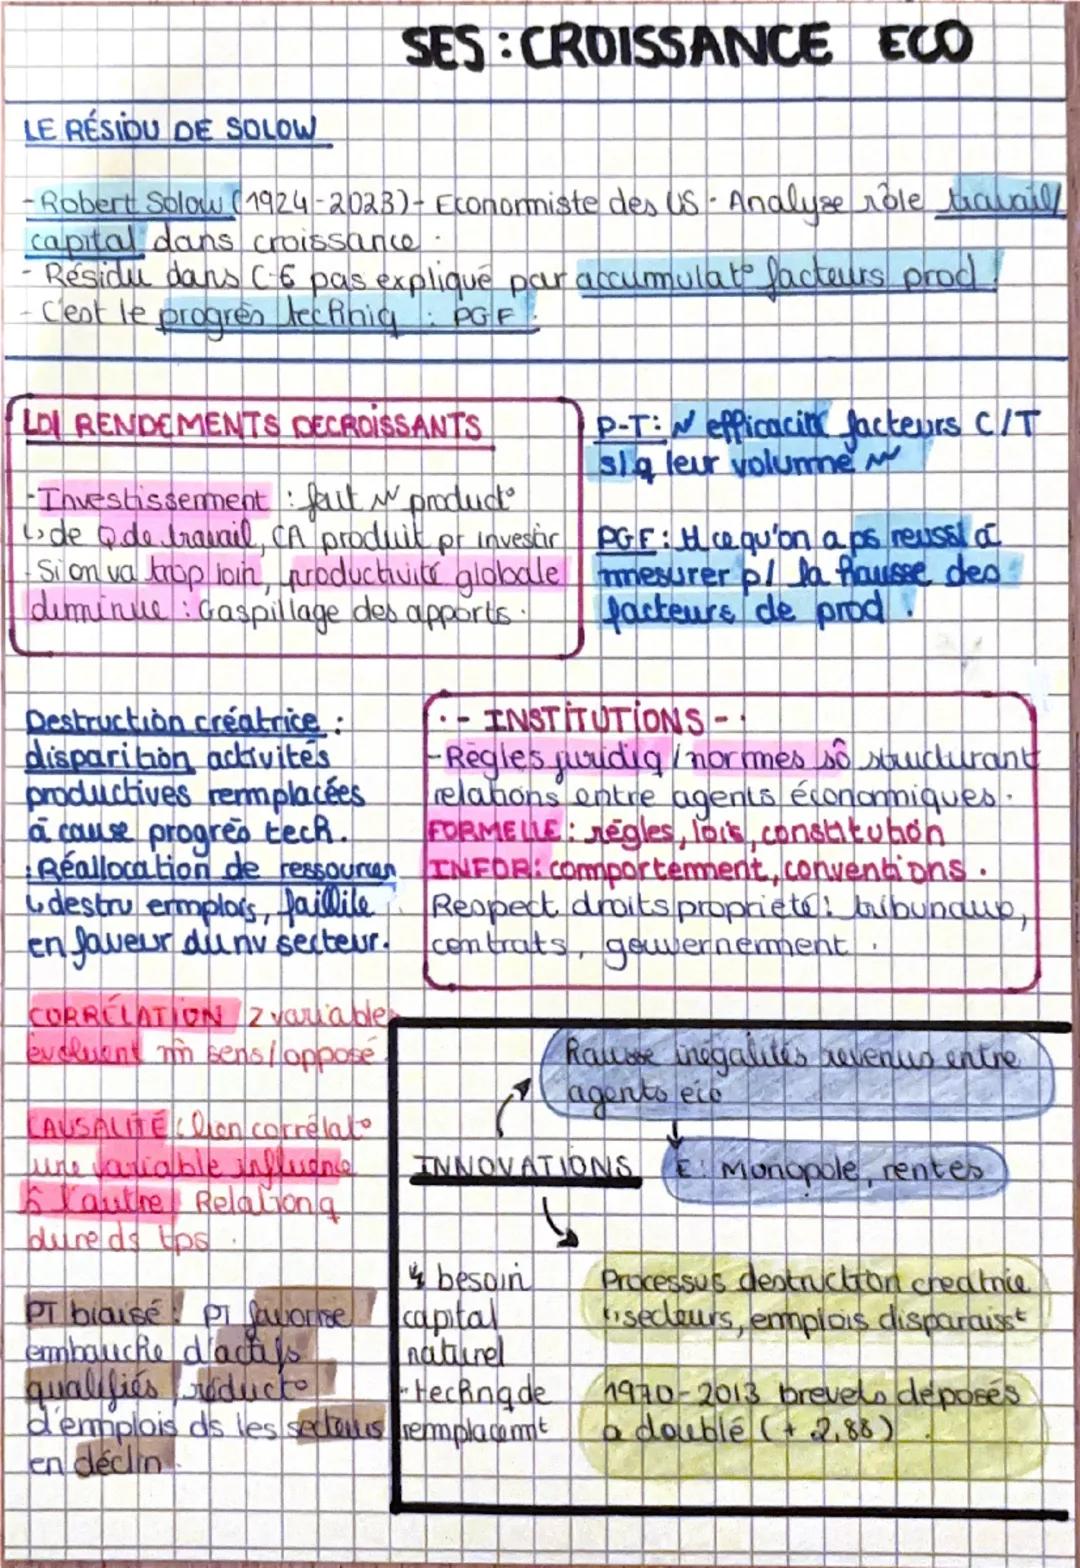 SES : CROISSANCE ECO
LE RÉSIDU DE SOLOW
- Robert Solow (1924-2023)- Economiste des US - Analyse rôle travail/
capital dans croissance.
- Résidu dans C-E pas expliqué par accumulat° facteurs prod
- C'est le progrès techniq : PGF.
LOI RENDEMENTS DECROISSANTS
- Investissement : fait ↗ product°
↳ de Q de travail, CA produit pr investir
- Si on va trop loin, productivité globale
diminue : Gaspillage des apports.
P-T : ↗ efficacité facteurs C/T
slq leur volume ↗
PGF : tt ce qu'on a ps reussi à
mesurer p/ la hausse des
facteurs de prod.
Destruction créatrice :
disparition activités
productives remplacées
à cause progrès tech.
: Réallocation de ressources
↳ destru emplois, faillite
en faveur du nv secteur.
- INSTITUTIONS -
- Règles juridiq / normes sô structurant
relations entre agents économiques.
FORMELLE : règles, lois, constitution
INFOR : comportement, conventions.
Respect droits propriété : tribunaux,
contrats, gouvernement.
CORRÉLATION 2 variables
évoluent m̂ sens/opposé
CAUSALITÉ : lien corrélat°
une variable influence
l'autre Relation q
dure ds tps.
PT biaisé : PT favorise
embauche d'actifs
qualifiés / réduct°
d'emplois ds les secteurs
en déclin.
Hausse inégalités revenus entre
agents éco
INNOVATIONS
E : Monopole, rentes
↳ besoin
capital
naturel
- techniq de
remplacemt
Processus destruction creatrice
: secteurs, emplois disparaisst
1970-2013 brevets déposés
a doublé (+ 2,88).